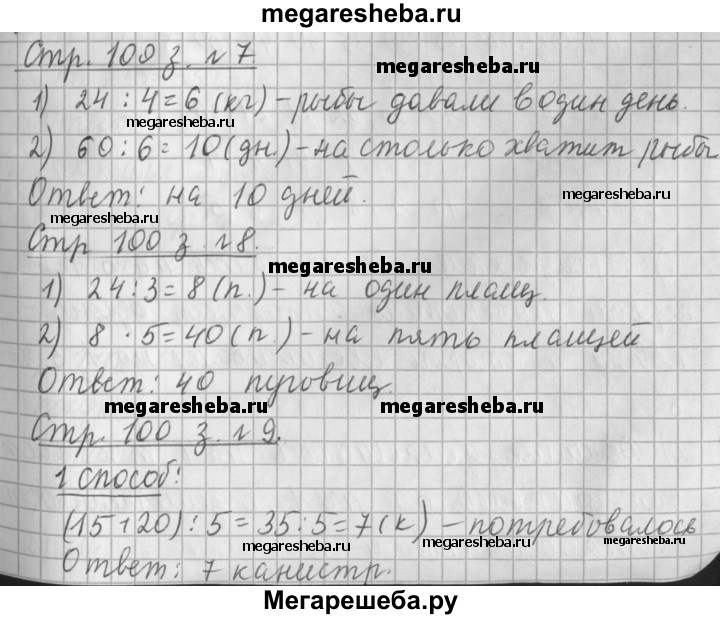 megaresheba.ru
Стр. 100 з. №7.
megaresheba.ru
1) 24 : 4 = 6 (кг) – рыбы давали в один день.
megaresheba.ru
2) 60 : 6 = 10 (дн.) – на столько хватит рыбы
Ответ: на 10 дней.
megaresheba.ru
megaresheba.ru
Стр 100 з. №8.
megaresheba.ru
1) 24 : 3 = 8 (п.) – на один плащ.
2) 8 · 5 = 40 (п.) – на пять плащей
Ответ: 40 пуговиц.
megaresheba.ru megaresheba.ru
Стр. 100 з. №9.
1 способ:
(15+20) : 5 = 35 : 5 = 7 (к) – потребовалось
megaresheba.ru megaresheba.ru megaresheba.ru
Ответ: 7 канистр.
Мегарешеба.ру